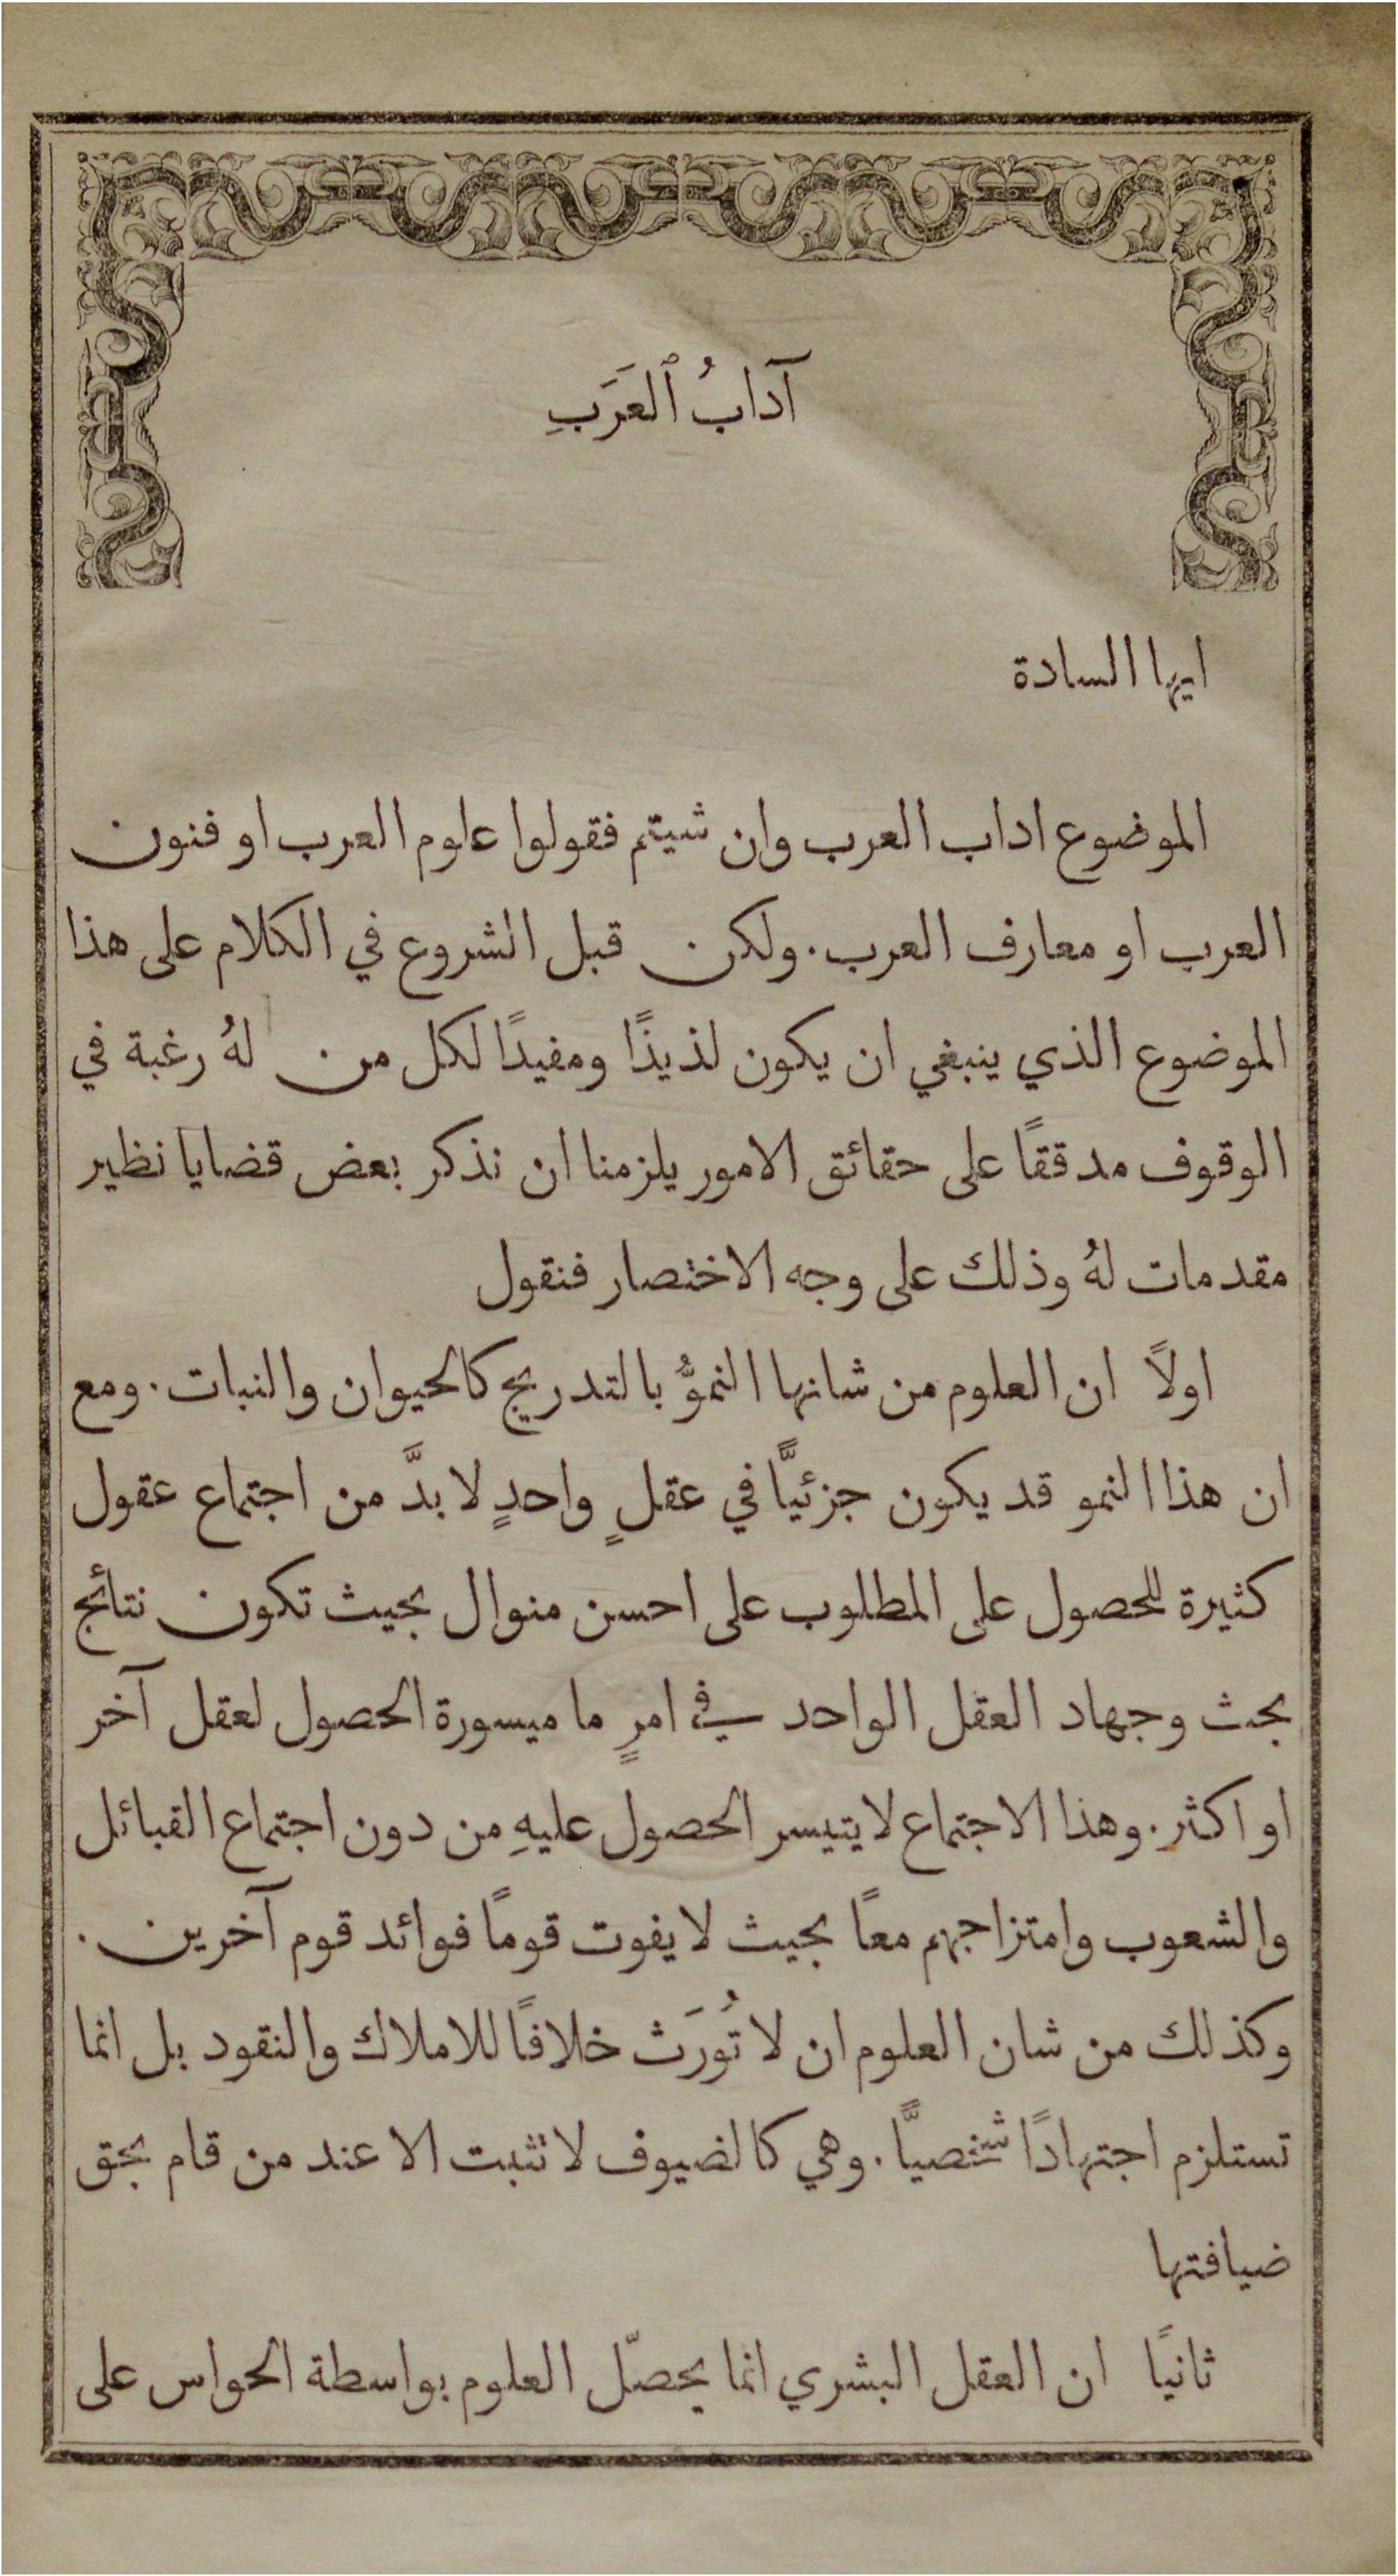 آدَابُ ٱلعَرَبِ
ايها السادة
الموضوع اداب العرب وان شيتم فقولوا علوم العرب او فنون
العرب او معارف العرب. ولكن قبل الشروع في الكلام على هذا
الموضوع الذي ينبغي ان يكون لذيذًا ومفيدًا لكل من لهُ رغبة في
الوقوف مدققًا على حقائق الامور يلزمنا ان نذكر بعض قضايا نظير
مقدمات لهُ وذلك على وجه الاختصار فنقول
اولاً ان العلوم من شانها النموُّ بالتدريج كالحيوان والنبات. ومع
ان هذا النمو قد يكون جزئيًّا في عقلٍ واحدٍ لا بدَّ من اجتماع عقول
كثيرة للحصول على المطلوب على احسن منوال بحيث تكون نتائج
بحث وجهاد العقل الواحد في امرٍ ما ميسورة الحصول لعقل آخر
او اكثر. وهذا الاجتماع لا يتيسر الحصول عليهِ من دون اجتماع القبائل
والشعوب وامتزاجهم معًا بحيث لا يفوت قومًا فوائد قوم آخرين.
وكذلك من شان العلوم ان لا تُورَث خلافًا للاملاك والنقود بل انما
تستلزم اجتهادًا شخصيًّا. وهي كالضيوف لا تثبت الا عند من قام بحق
ضيافتها
ثانيًا ان العقل البشري انما يحصّل العلوم بواسطة الحواس على